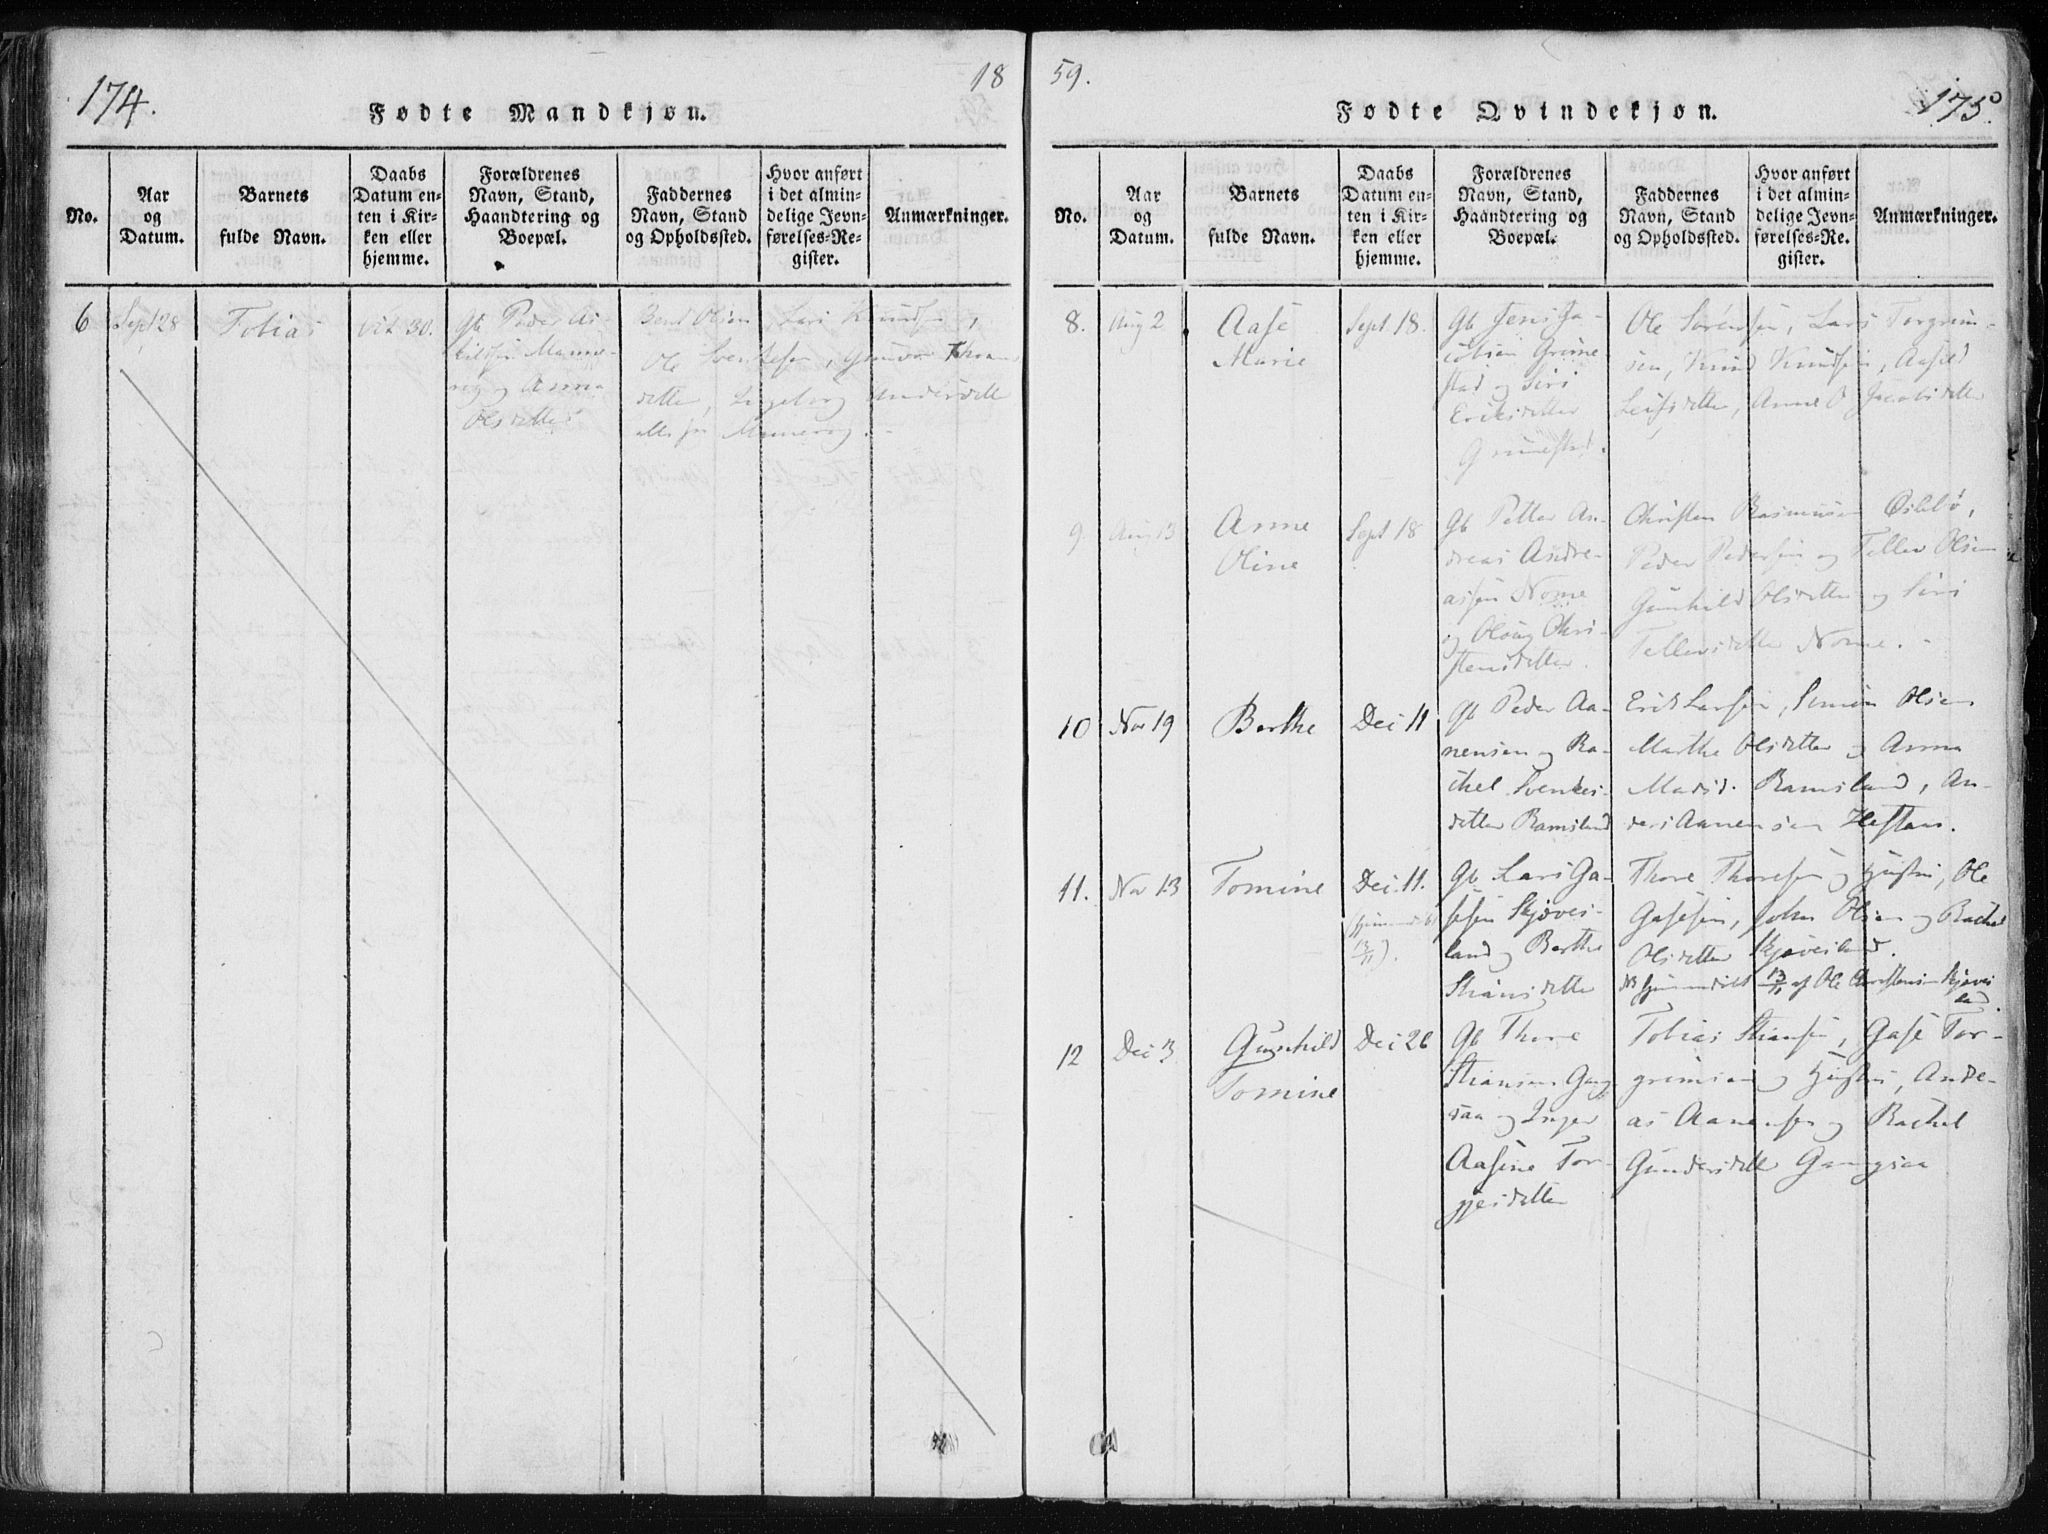 174.
18
Fødte Mandkjøn.
No.
Aar
og
Datum.
Barnets
fulde Navn.
Daabs
Datum en-
ten i Kir-
ken eller
hjemme.
Forældrenes
Navn, Stand,
Haandtering og
Boepæl.
Faddernes
Navn, Stand
og Opholdssted.
Hvor anført
i det almin-
delige Jevn-
førelses-Re-
gister.
Anmærkninger.
6
Sept 28
Tobias
30.
Gb Peder As-
og Anna
Olsdatter
Bent Olsen, Lars Knudsen,
Ole
datter, Ingeborg Andersdatter
alle fra
59.
175
Fødte Qvindekjøn.
No.
Aar
og
Datum.
Barnets
fulde Navn.
Daabs
Datum en-
ten i Kir-
ken eller
hjemme.
Forældrenes
Navn, Stand,
Haandtering og
Boepæl.
Faddernes
Navn, Stand
og Opholdssted.
Hvor anført
i det almin-
delige Jevn-
førelses-Re-
gister.
Anmærkninger.
8.
Aug 2
Aase
Marie
Sept. 18.
Gb Jens Ja-
cobsen Grime-
stad og Siri
Eriksdatter
Grimestad.
Ole Sørensen, Lars Torgrim-
sen, Knud Knudsen, Aasel
Leifsdatter, Anne O Jacobsdatter
9.
Aug 13
Anne
Oline
Sept 18
Gb Petter An-
dreas Andre-
assen Nome
og Oloug Chri-
stensdatter.
Christen Rasmussen Øslebø,
Peder Pedersen og Tellev Olsen
Gunhild Olsdatter og Siri
Tellevsdatter Nome.
10
Nov 19
Berthe
Dec 11
Gb Peder Aa-
nensen og Ra-
chel Svenkes-
datter Ramsland
Erik Larsen, Simon Olsen
Marthe Olsdatter og Anna
Madsd. Ramsland, An-
ders Aanensen Heftan.
11.
Nov 13
Tomine
Dec. 11.
(hjemmedøbt
13/11).
Gb Lars Ga-
sesen Skjæves-
land og Berthe
Stiansdatter
Thore Thoresen og Hustru, Ole
Gasesen, John Olsen og Rachel
Olsdatter Skjævesland.
NB hjemmedøbt 13/11 af Ole Christensen Skjæves
land.
12
Dec 3
Gunhild
Tomine
Dec 26
Gb Thore
Stiansen Gang-
saa og Inger
Aasine Tor-
gjesdatter
Tobias Stiansen, Gase Tor-
grimsen og Hustru, Andre-
as Aanensen og Rachel
Gundersdatter Gangsaa